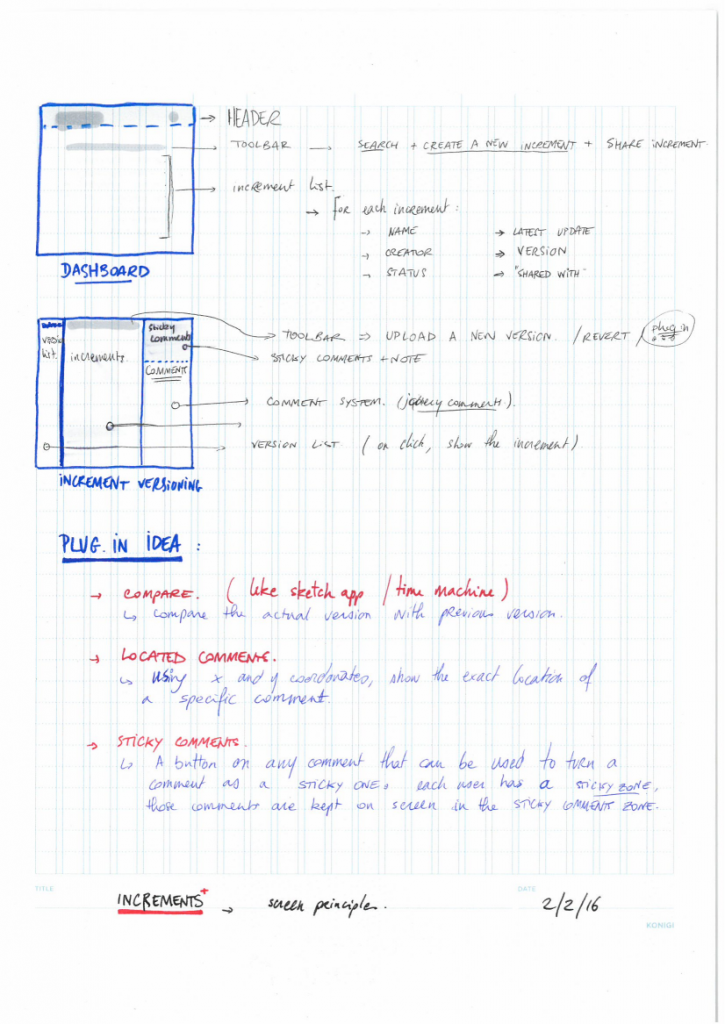 → HEADER
→ TOOLBAR → SEARCH + CREATE A NEW INCREMENT + SHARE INCREMENT.
→ increment list.
→ For each increment :
→ NAME → LATEST UPDATE
→ CREATOR → VERSION
→ STATUS → "SHARED WITH"
DASHBOARD
list.
increments.
Sticky
comments
COMMENTS
→ TOOLBAR ⇒ UPLOAD A NEW VERSION. / REVERT / plug.in
→ STICKY COMMENTS + NOTE
→ COMMENT SYSTEM. (jquery comments).
→ VERSION LIST (on click, show the increment)
INCREMENT VERSIONING
PLUG.IN IDEA :
→ COMPARE. (like sketch app / time machine)
↳ compare the actual version with previous version.
→ LOCATED COMMENTS.
↳ using x and y coordonates, show the exact location of
a specific comment.
→ STICKY COMMENTS.
↳ A button on any comment that can be used to turn a
comment as a STICKY ONE, each user has a STICKY ZONE,
those comments are kept on screen in the STICKY COMMENT ZONE.
TITLE
DATE
INCREMENTS+ → screen principles.
2/2/16
KONIGI